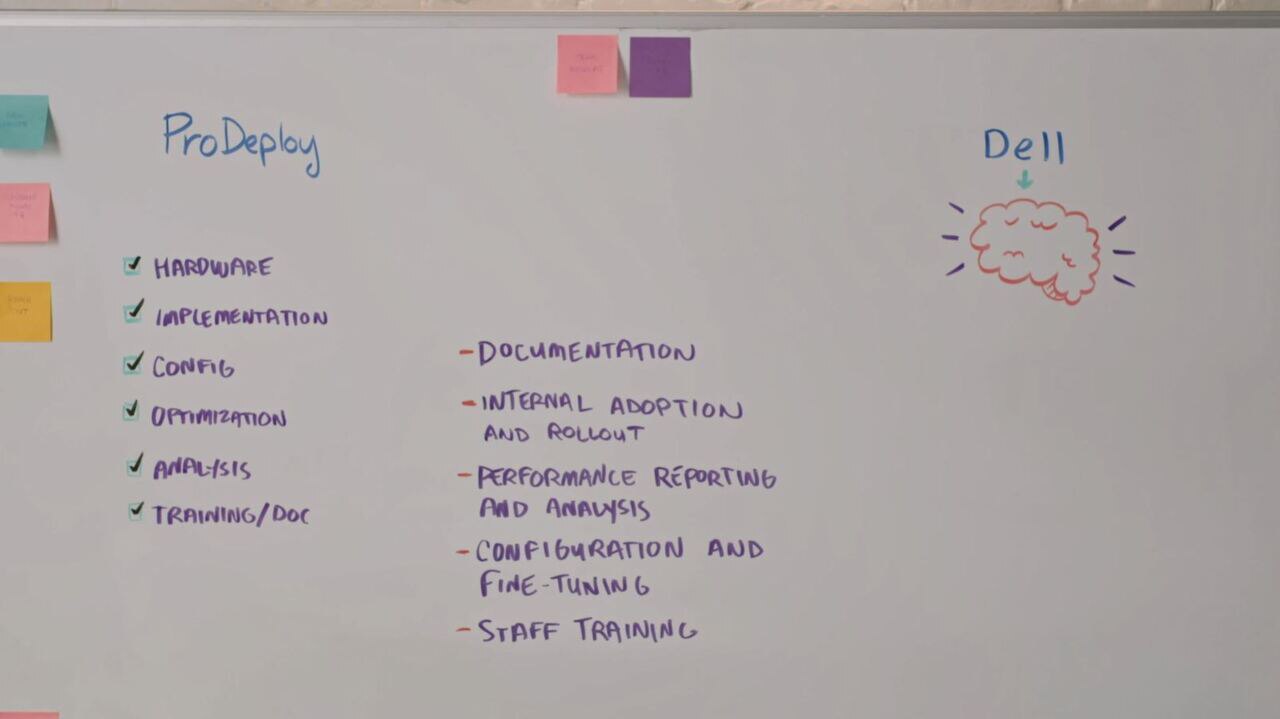 ProDeploy
HARDWARE
IMPLEMENTATION
CONFIG
OPTIMIZATION
ANALYSIS
TRAINING/DOC
- DOCUMENTATION
- INTERNAL ADOPTION
AND ROLLOUT
- PERFORMANCE REPORTING
AND ANALYSIS
- CONFIGURATION AND
FINE-TUNING
- STAFF TRAINING
Dell